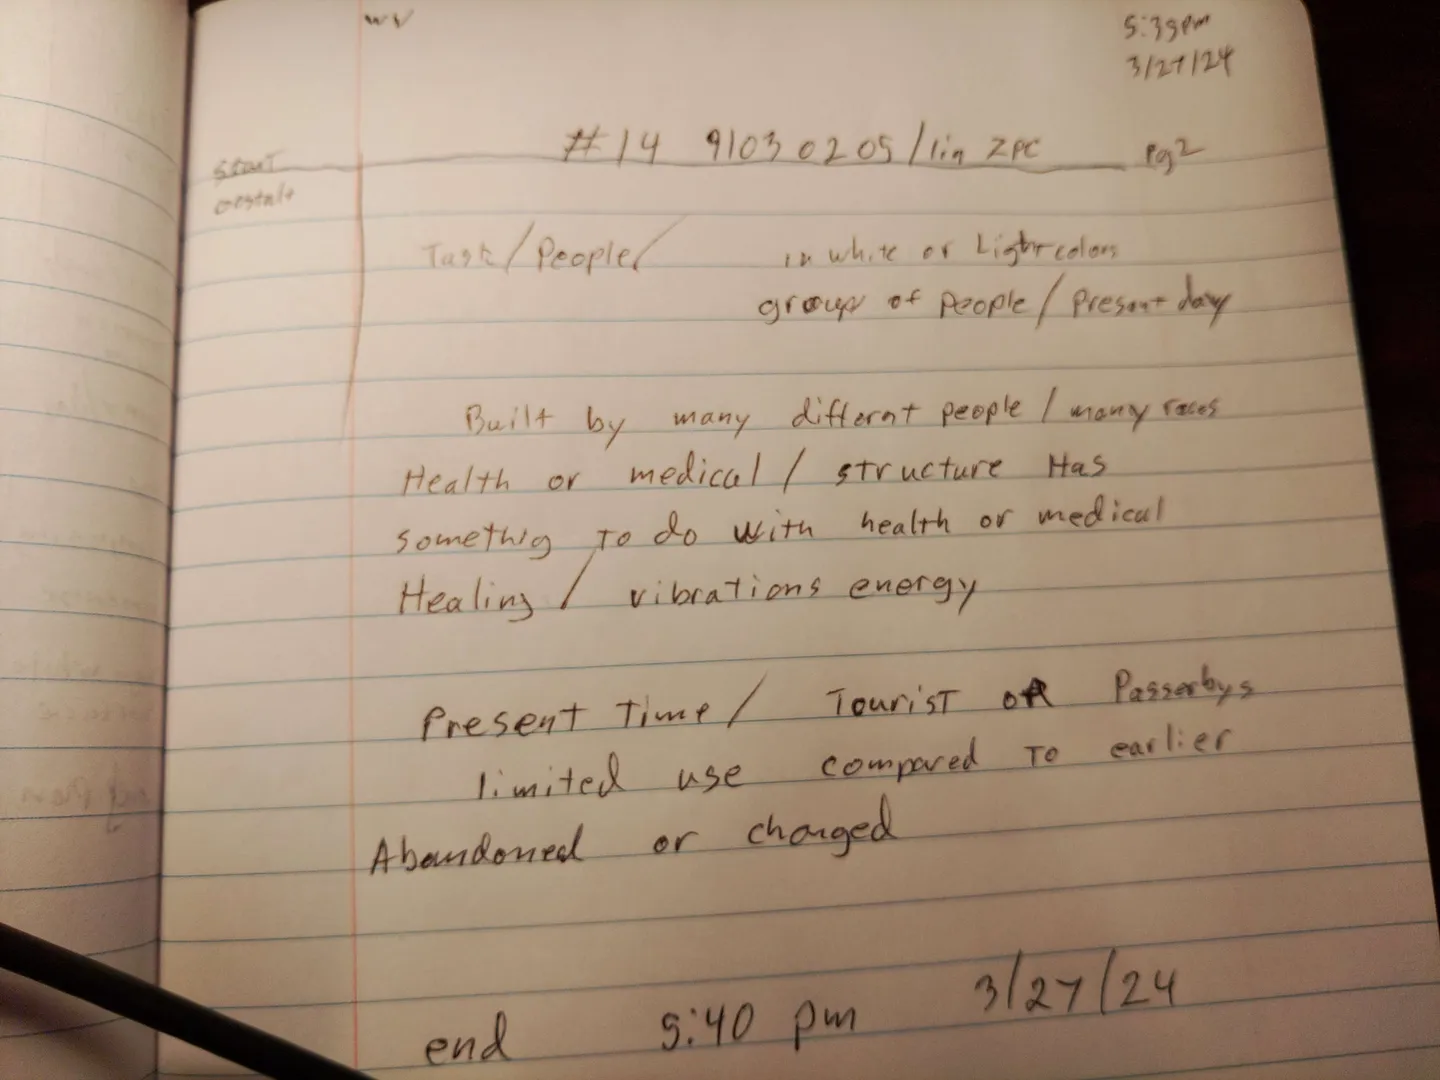 5:39pm
3/27/24
#14 9103 0205/lin ZPC pg2
start
Gestalt
Task/People/ in white or Light colors
groups of People/Present day
Built by many different people/many races
Health or medical/structure Has
somethig To do with health or medical
Healing/vibrations energy
Present Time/Tourist or Passerbys
limited use compared To earlier
Abandoned or changed
end 5:40 pm 3/27/24